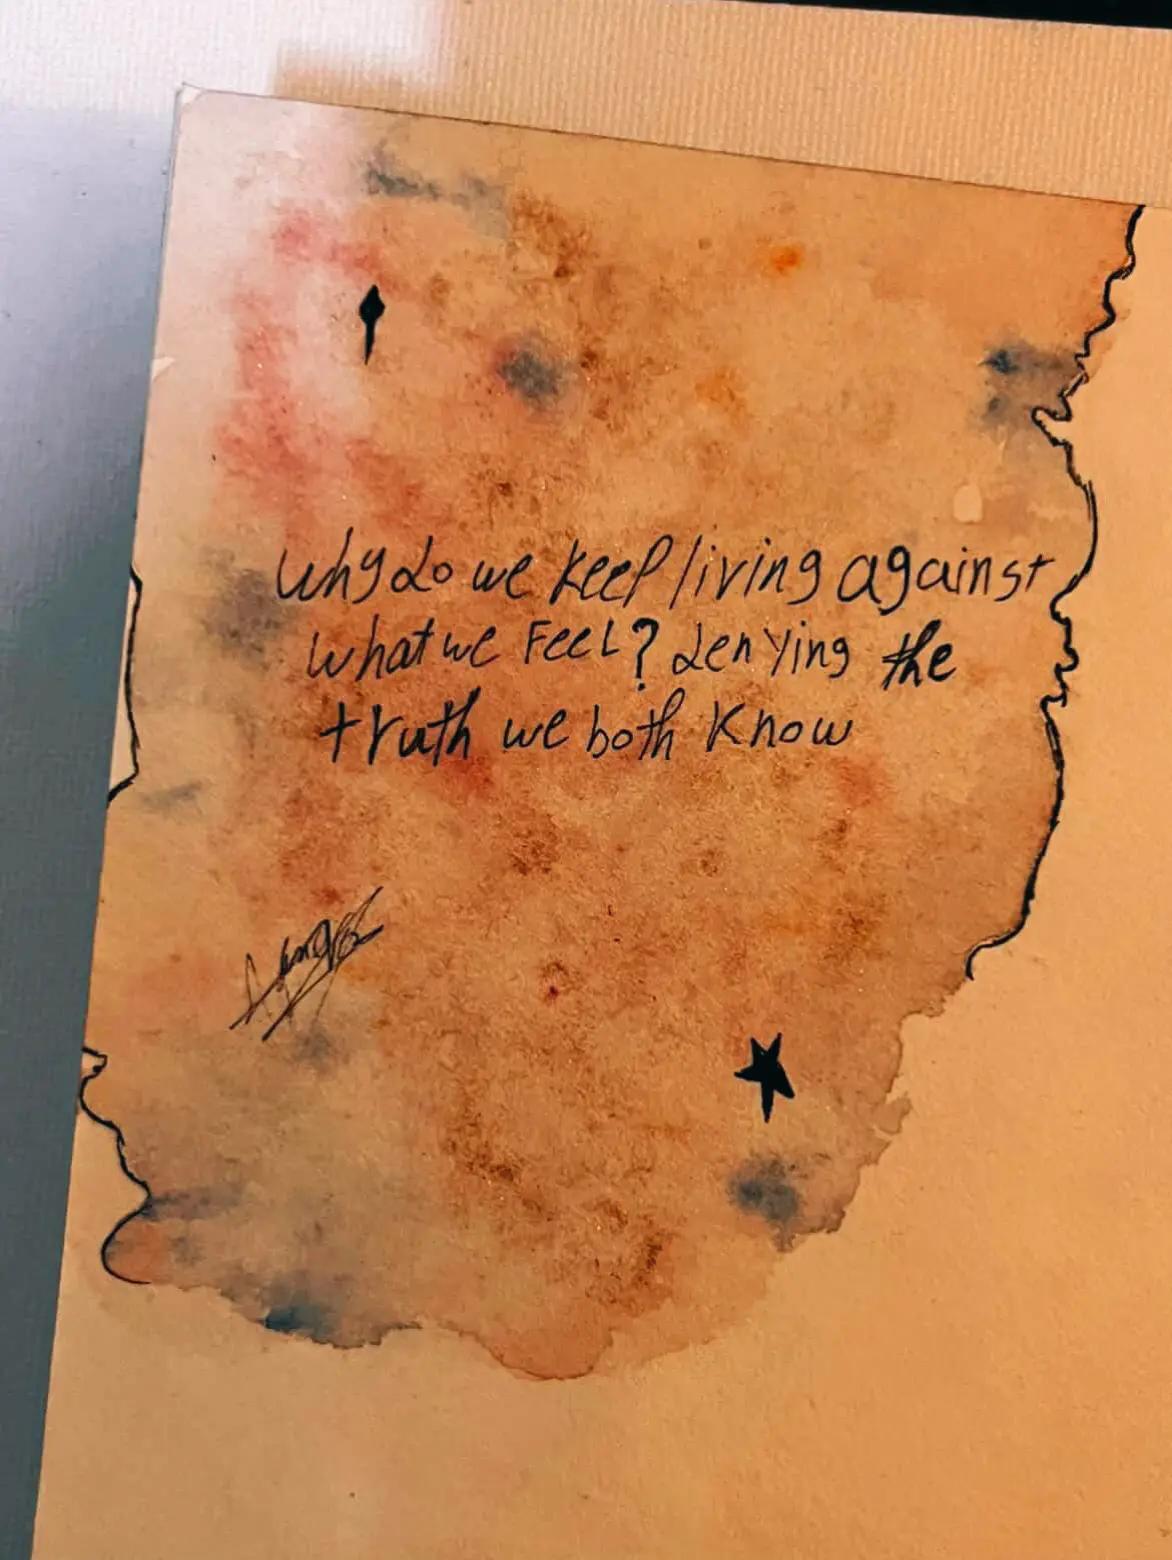 why do we keep living against
what we FeeL? denying the
truth we both know